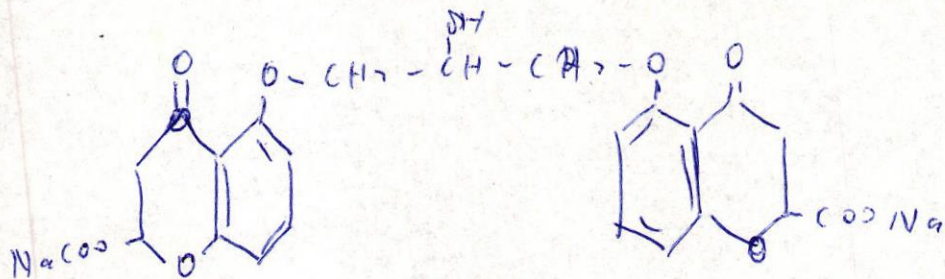 OH
O O - CH₂ - CH - CH₂ - O O
NaCOO O O COONa